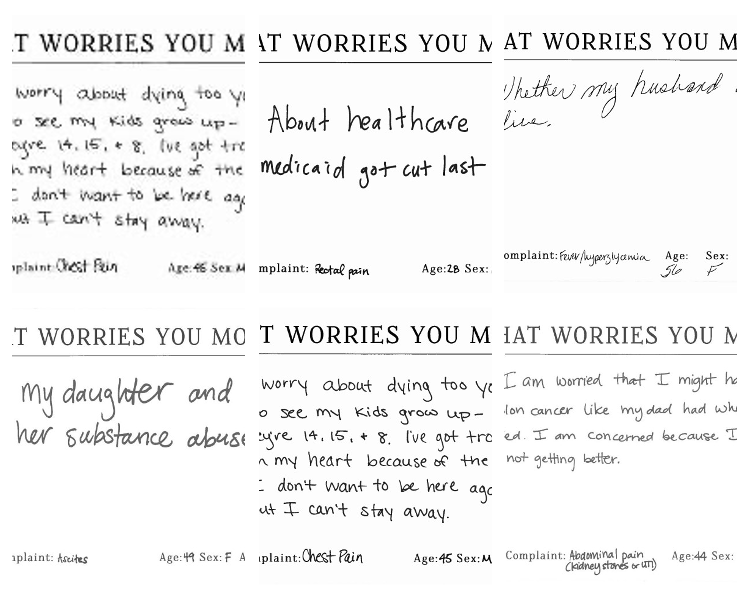 T WORRIES YOU M
worry about dying too y
o see my kids grow up-
eyre 14, 15, + 8. I've got tro
n my heart because of the
I don't want to be here aga
but I can't stay away.
mplaint: Chest Pain Age: 45 Sex: M
AT WORRIES YOU M
About healthcare
medicaid got cut last
mplaint: Rectal pain Age: 28 Sex:
AT WORRIES YOU M
Whether my husband
lives.
omplaint: Fever/hyperglycemia Age: 56 Sex: F
T WORRIES YOU MO
my daughter and
her substance abuse
plaint: Ascites Age: 49 Sex: F A
T WORRIES YOU M
worry about dying too yo
o see my kids grow up-
eyre 14, 15, + 8. I've got tro
n my heart because of the
I don't want to be here aga
ut I can't stay away.
plaint: Chest Pain Age: 45 Sex: M
HAT WORRIES YOU M
I am worried that I might ha
lon cancer like my dad had wh
ed. I am concerned because I
not getting better.
Complaint: Abdominal pain Age: 44 Sex:
(kidney stones or UTI)